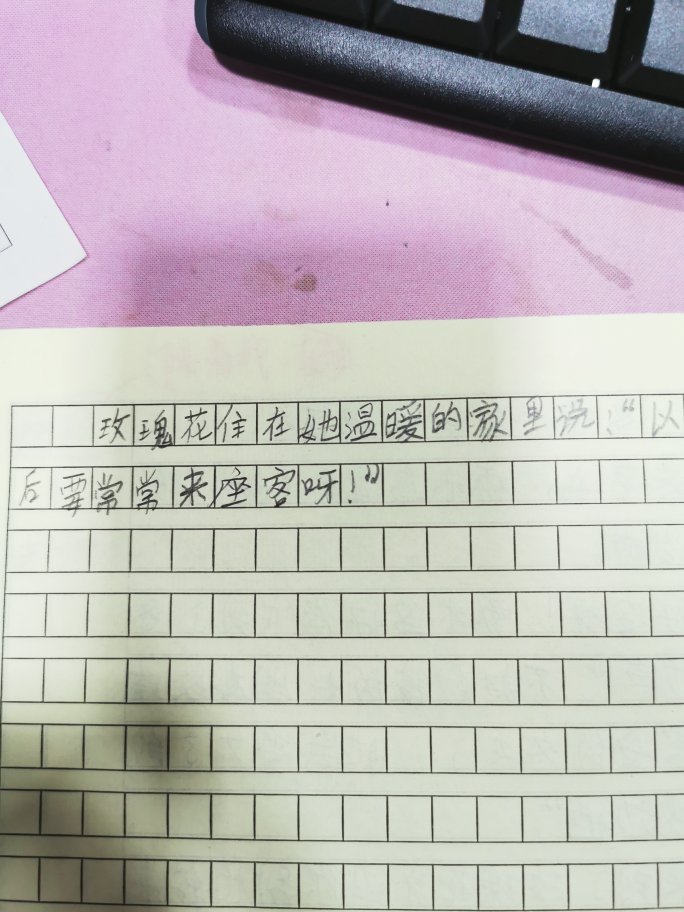 玫瑰花住在她温暖的家里说:“以
后要常常来座客呀!”